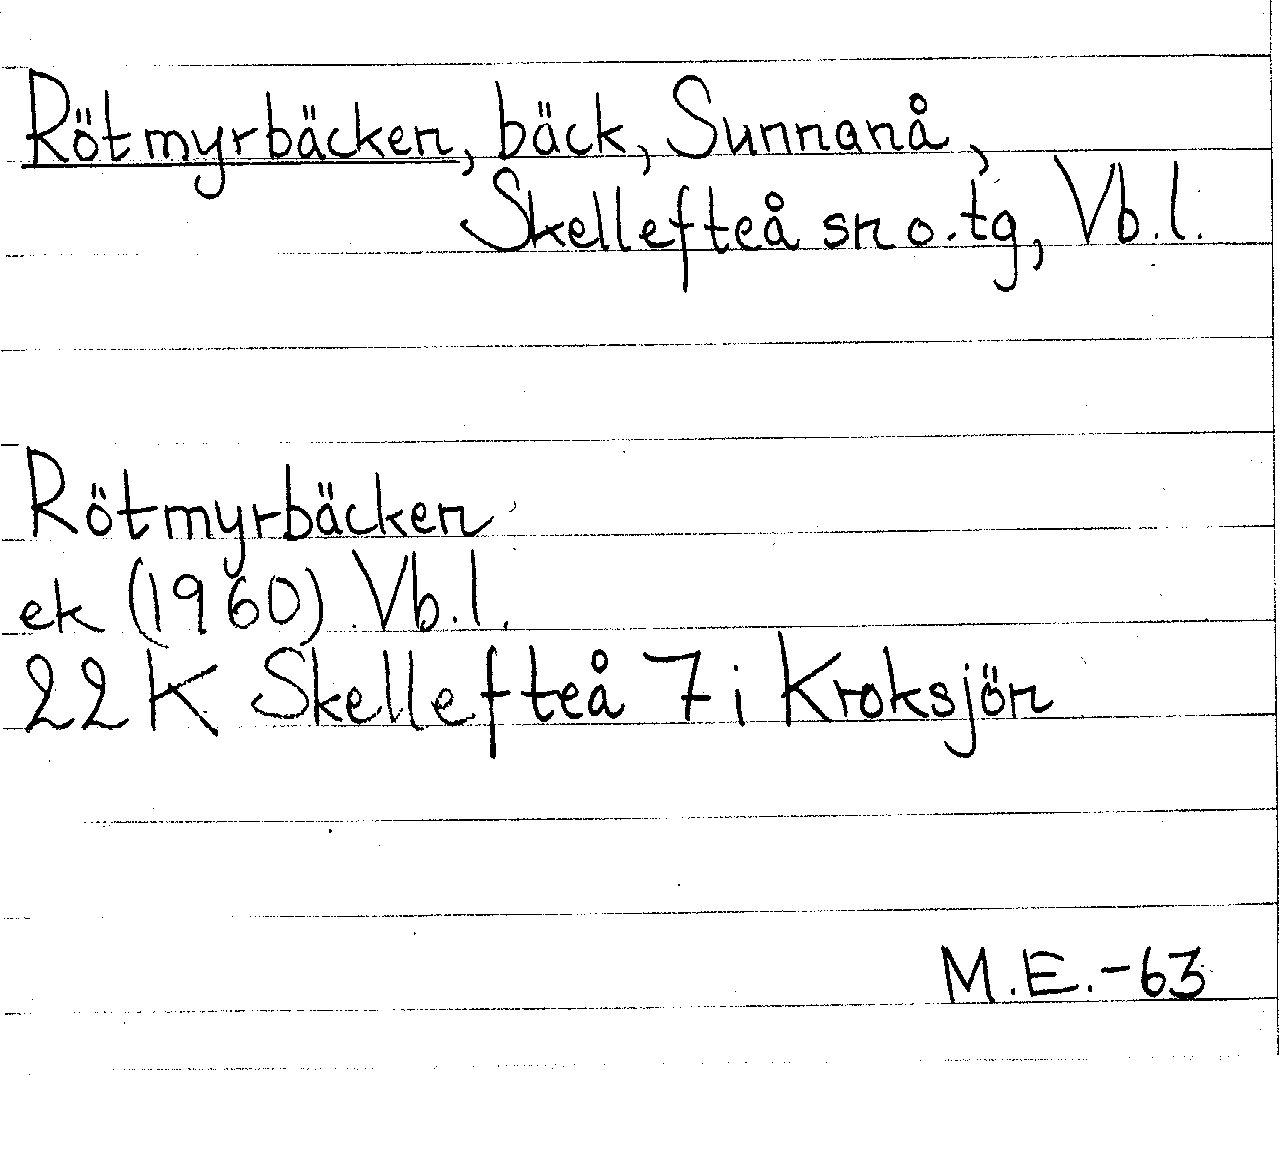 Rötmyrbäcken, bäck, Sunnanå,
Skellefteå sn o. tg, Vb. l.
Rötmyrbäcken
ek (1960) Vb. l.
22 K Skellefteå 7 i Kroksjön
M.E. -63